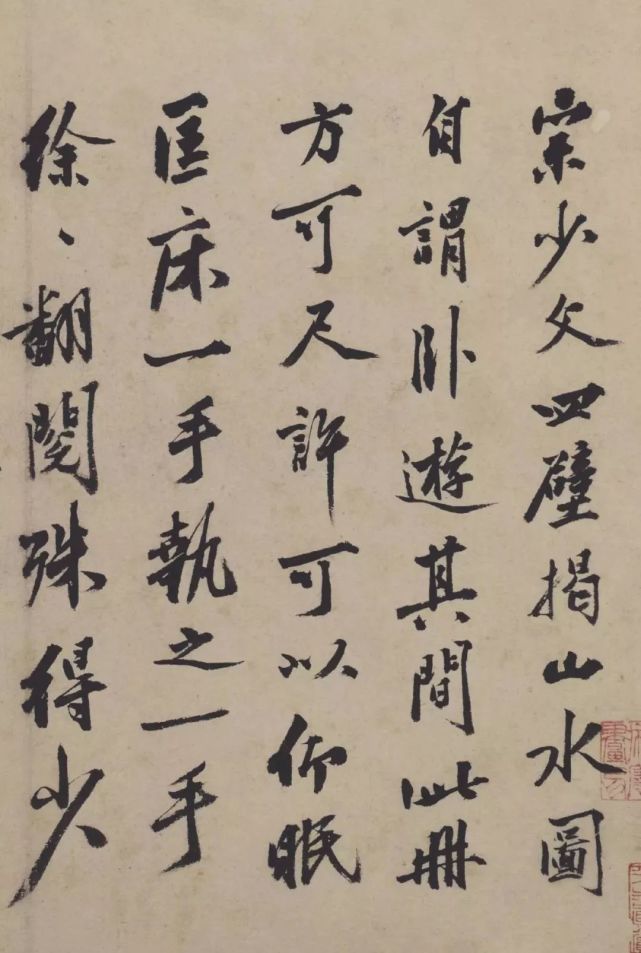 宗少文四壁揭山水圖
自謂卧遊其間此冊
方可尺許可以仰眠
匡床一手執之一手
徐、翻閱殊得少